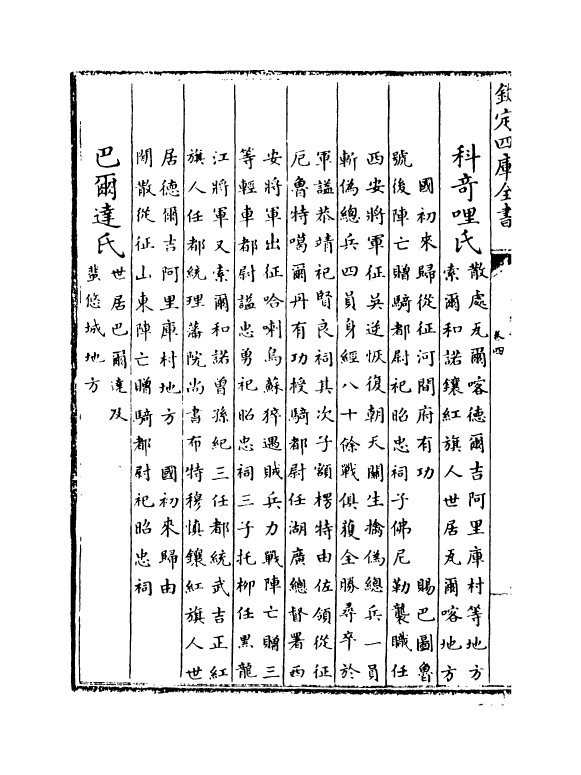 欽定四庫全書
卷四
科奇哩氏
散處瓦爾喀德爾吉阿里庫村等地方
索爾和諾鑲紅旗人世居瓦爾喀地方
國初來歸從征河間府有功　賜巴圖魯
號後陣亡贈騎都尉祀昭忠祠子佛尼勒襲職任
西安將軍征吳逆恢復朝天關生擒偽總兵一員
斬偽總兵四員身經八十餘戰俱獲全勝尋卒於
軍諡恭靖祀賢良祠其次子額楞特由佐領從征
厄魯特噶爾丹有功授騎都尉任湖廣總督署西
安將軍出征哈喇烏蘇猝遇賊兵力戰陣亡贈三
等輕車都尉諡忠勇祀昭忠祠三子托柳任黑龍
江將軍又索爾和諾曾孫紀三任都統武吉正紅
旗人任都統理藩院尚書布特穆慎鑲紅旗人世
居德爾吉阿里庫村地方　國初來歸由
閒散從征山東陣亡贈騎都尉祀昭忠祠
巴爾達氏
世居巴爾達及
蜚悠城地方